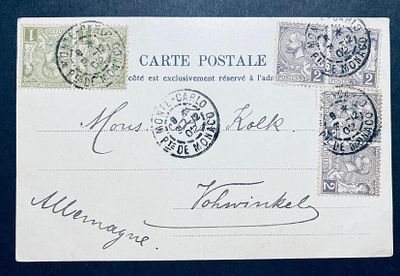 1
MONTE-CARLO
PTE DE MONACO
2 2
MONTE-CARLO
PTE DE MONACO
CARTE POSTALE
côté est exclusivement réservé à l'ad
MONTE-CARLO
02
PTE DE MONACO
2
Mons. Kolk
Vohwinkel
Allemagne.